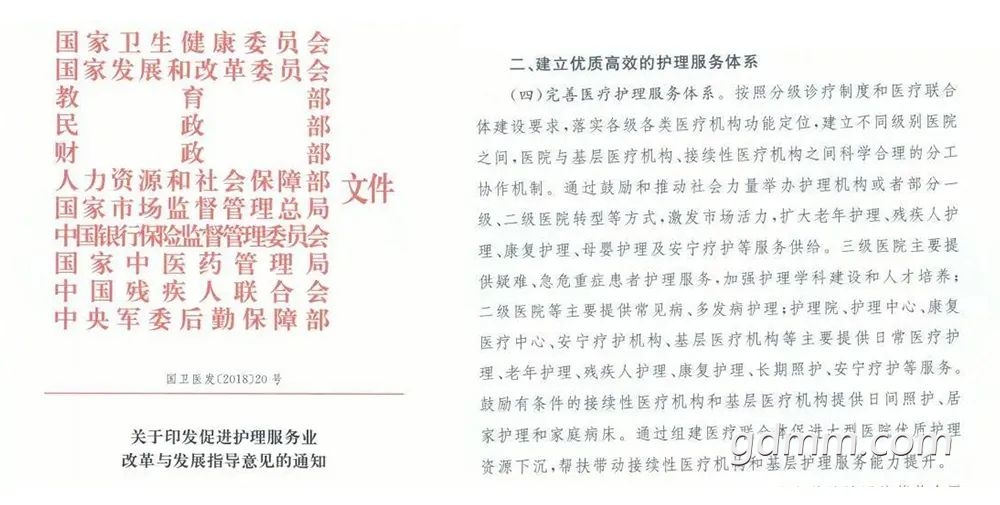 国家卫生健康委员会
国家发展和改革委员会
教育部
民政部
财政部
人力资源和社会保障部
国家市场监督管理总局
中国银行保险监督管理委员会
国家中医药管理局
中国残疾人联合会
中央军委后勤保障部
文件
国卫医发〔2018〕20号
关于印发促进护理服务业
改革与发展指导意见的通知
二、建立优质高效的护理服务体系
(四)完善医疗护理服务体系。按照分级诊疗制度和医疗联合
体建设要求,落实各级各类医疗机构功能定位,建立不同级别医院
之间,医院与基层医疗机构、接续性医疗机构之间科学合理的分工
协作机制。通过鼓励和推动社会力量举办护理机构或者部分一
级、二级医院转型等方式,激发市场活力,扩大老年护理、残疾人护
理、康复护理、母婴护理及安宁疗护等服务供给。三级医院主要提
供疑难、急危重症患者护理服务,加强护理学科建设和人才培养;
二级医院等主要提供常见病、多发病护理;护理院、护理中心、康复
医疗中心、安宁疗护机构、基层医疗机构等主要提供日常医疗护
理、老年护理、残疾人护理、康复护理、长期照护、安宁疗护等服务。
鼓励有条件的接续性医疗机构和基层医疗机构提供日间照护、居
家护理和家庭病床。通过组建医疗联合体促进大型医院优质护理
资源下沉,帮扶带动接续性医疗机构和基层护理服务能力提升。
gdmm.com